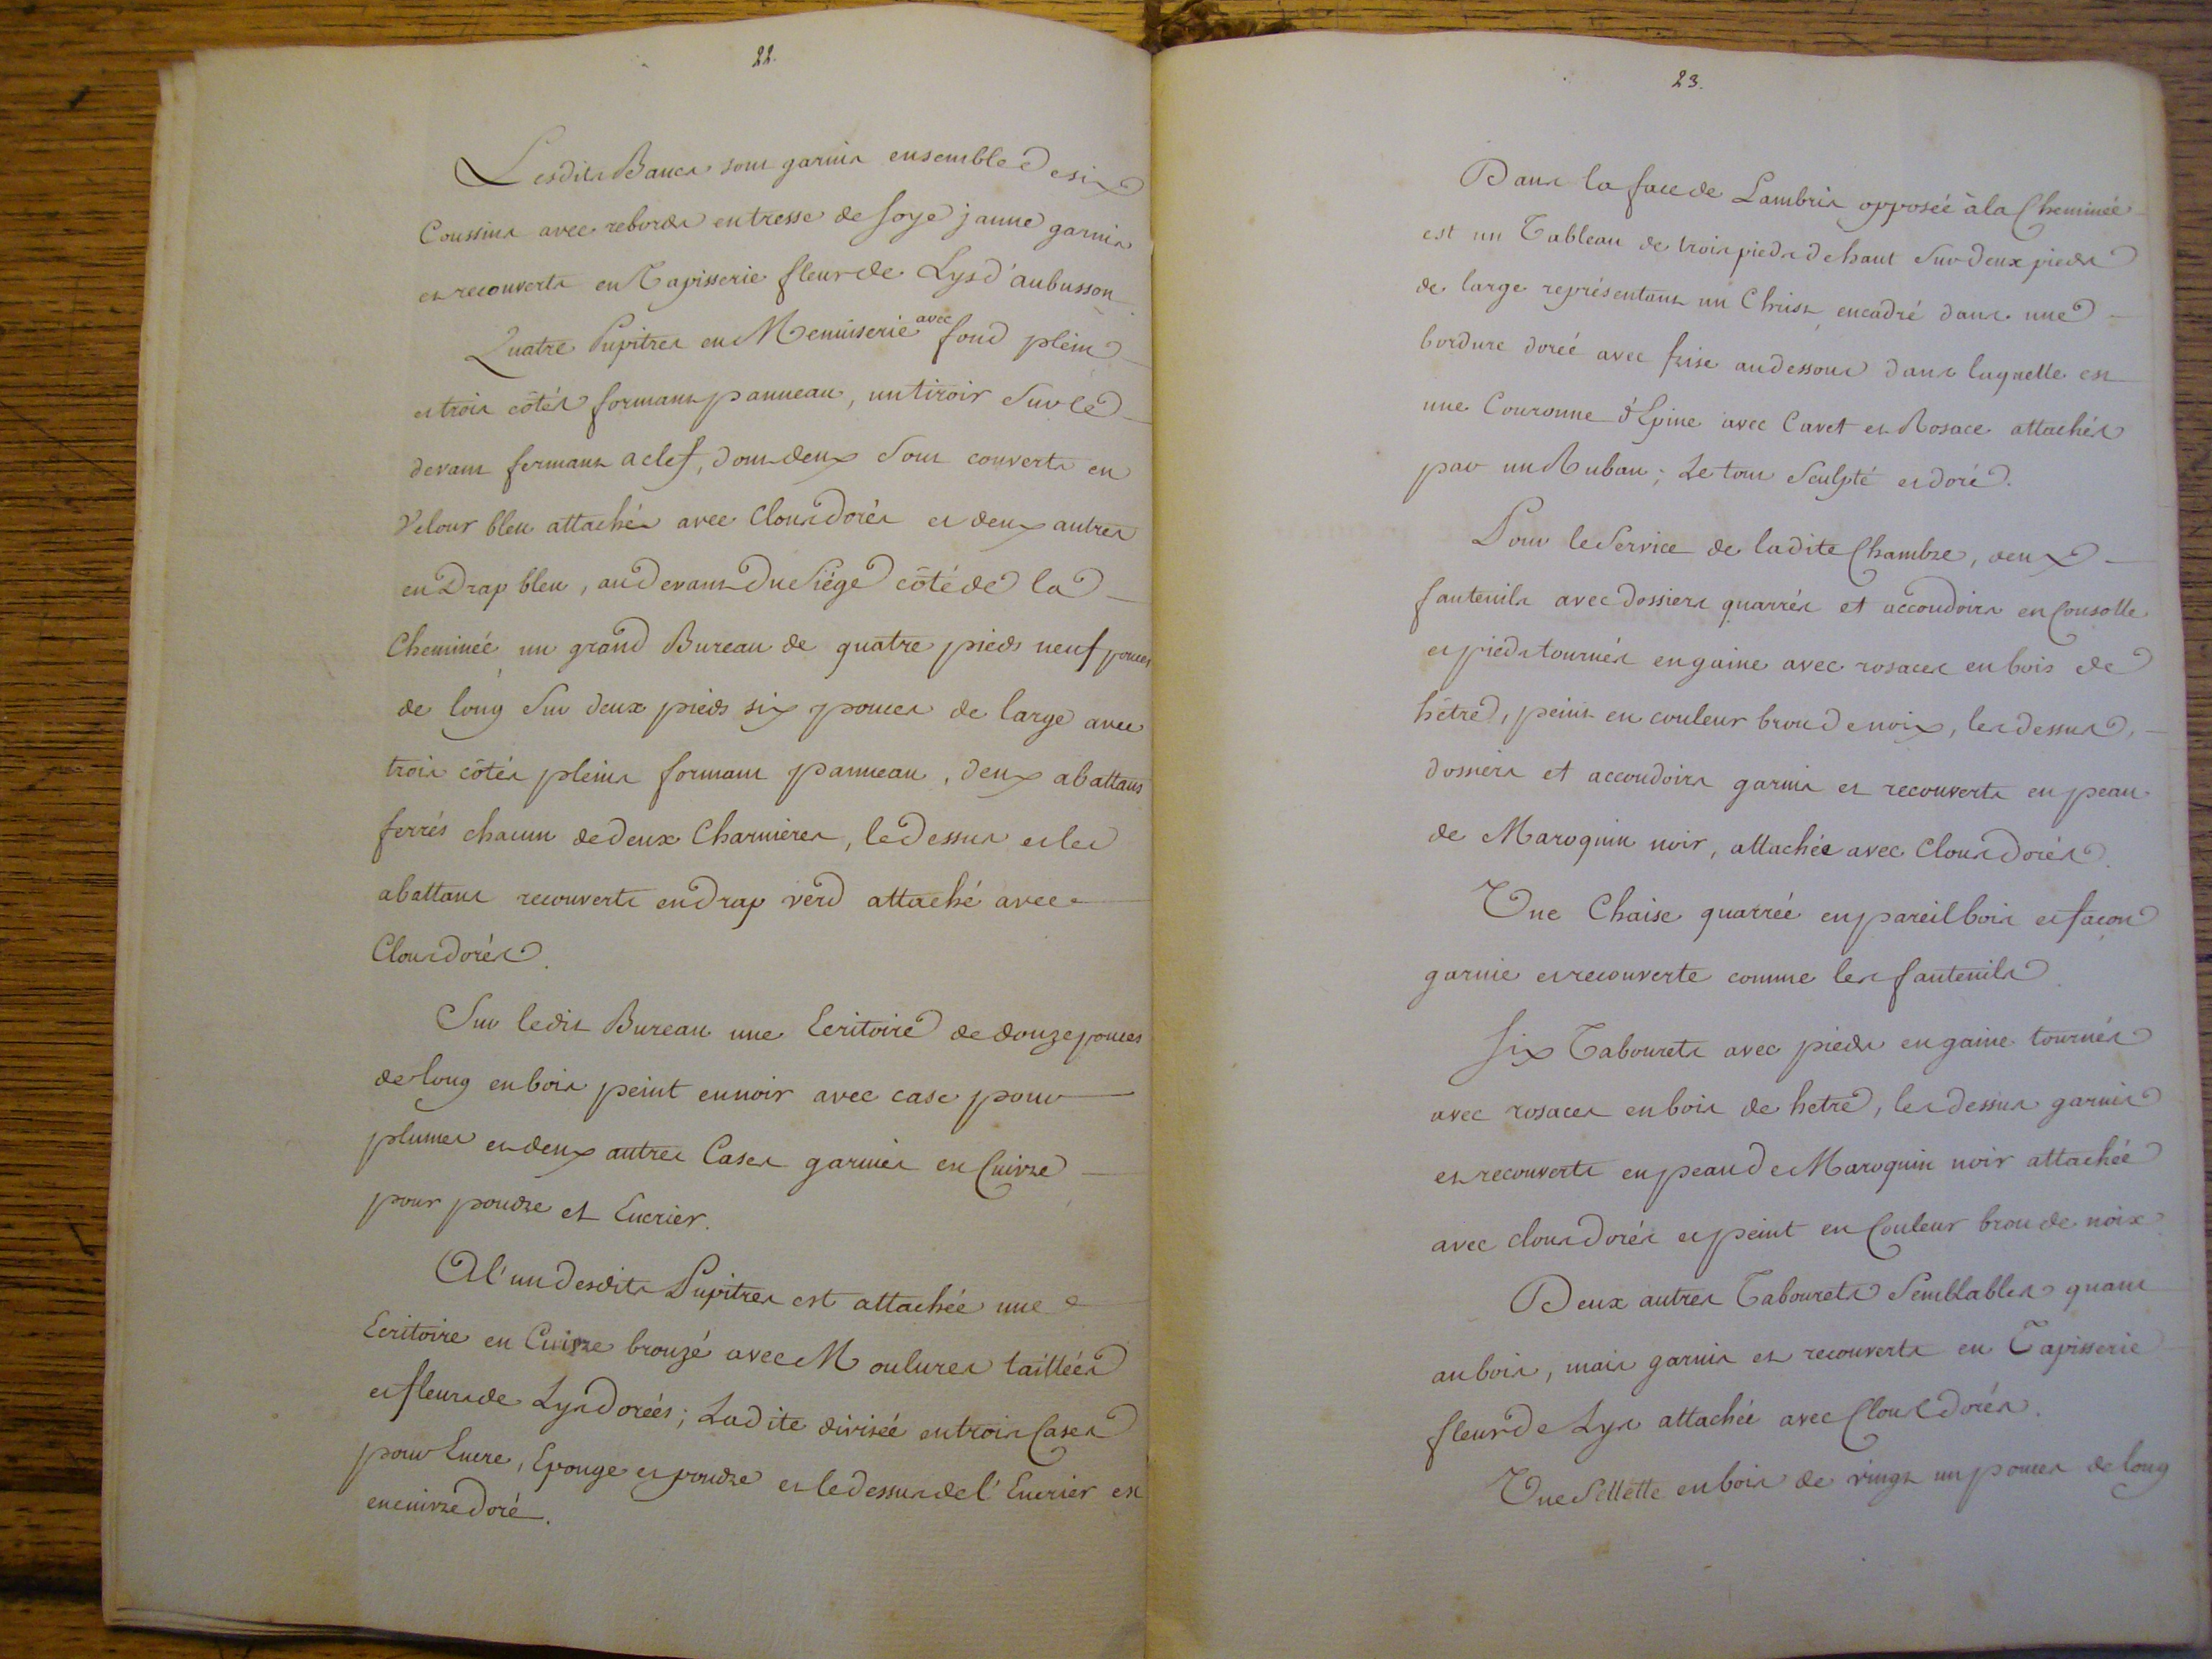 22.
Lesdits Bancs sont garnis ensemble de six
Coussins avec rebords en tresse de soye jaune garnis
et recouverts en Tapisserie fleur de Lys d'aubusson
Quatre Pupitres en Menuiserie avec fond plein
et trois côtés formant panneau, un tiroir sur le
devant fermant a clef, dont deux sont couverts en
Velour bleu attachés avec Clous dorés et deux autres
en Drap bleu, au devant du Siége côté de la
Cheminée un grand Bureau de quatre pieds neuf pouces
de long sur deux pieds six pouces de large avec
trois côtés pleins formant panneau, deux abattans
ferrés chacun de deux Charnieres, le dessus et les
abattans recouverts en drap verd attaché avec
Clous dorés.
Sur ledit Bureau une Ecritoire de douze pouces
de long en bois peint en noir avec case pour
plumes et deux autres Cases garnies en Cuivre
pour poudre et Encrier.
A l'un desdits Pupitres est attachée une
Ecritoire en Cuivre bronzé avec Moulures taillées
et fleurs de Lys Dorées; Ladite divisée en trois Cases
pour Encre, Eponge et poudre et le dessus de l'Encrier est
en cuivre doré.
23.
Dans la face de Lambris opposée à la Cheminée
est un Tableau de trois pieds de haut sur deux pieds
de large représentant un Christ encadré dans une
bordure dorée avec frise au dessous dans laquelle est
une Couronne d'Epine avec Cavet et Rosace attachés
par un Ruban; Le tout Sculpté et doré.
Pour le Service de ladite Chambre, deux
fauteuils avec dossiers quarrés et accoudoirs en Consolle
et pieds tournés en gaine avec rosaces en bois de
hêtre, peint en couleur brou de noix, les dessus,
dossiers et accoudoirs garnis et recouverts en peau
de Maroquin noir, attachée avec Clous dorés.
Une Chaise quarrée en pareil bois et façon
garnie et recouverte comme les fauteuils.
Six Tabourets avec pieds en gaine tournés
avec rosaces en bois de hetre, les dessus garnis
et recouverts en peau de Maroquin noir attachée
avec clous dorés et peint en Couleur brou de noix
Deux autres Tabourets Semblables quant
au bois, mais garnis et recouverts en Tapisserie
fleur de Lys attachée avec Clous dorés.
Une Sellette en bois de vingt un pouces de long